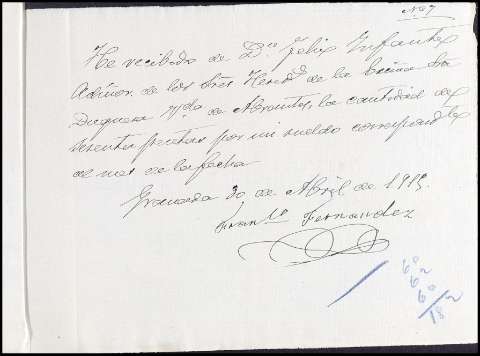 Nº 7
He recibido de Dn. Felix Infantes
Admor. de los Sres Hered.s de la Excma Sra
Duquesa Vda de Abrantes, la cantidad de
sesenta pesetas por mi sueldo correspond.te
al mes de la fecha
Granada 30 de Abril de 1913.
Fran.co Fernandez
60
62
60
182